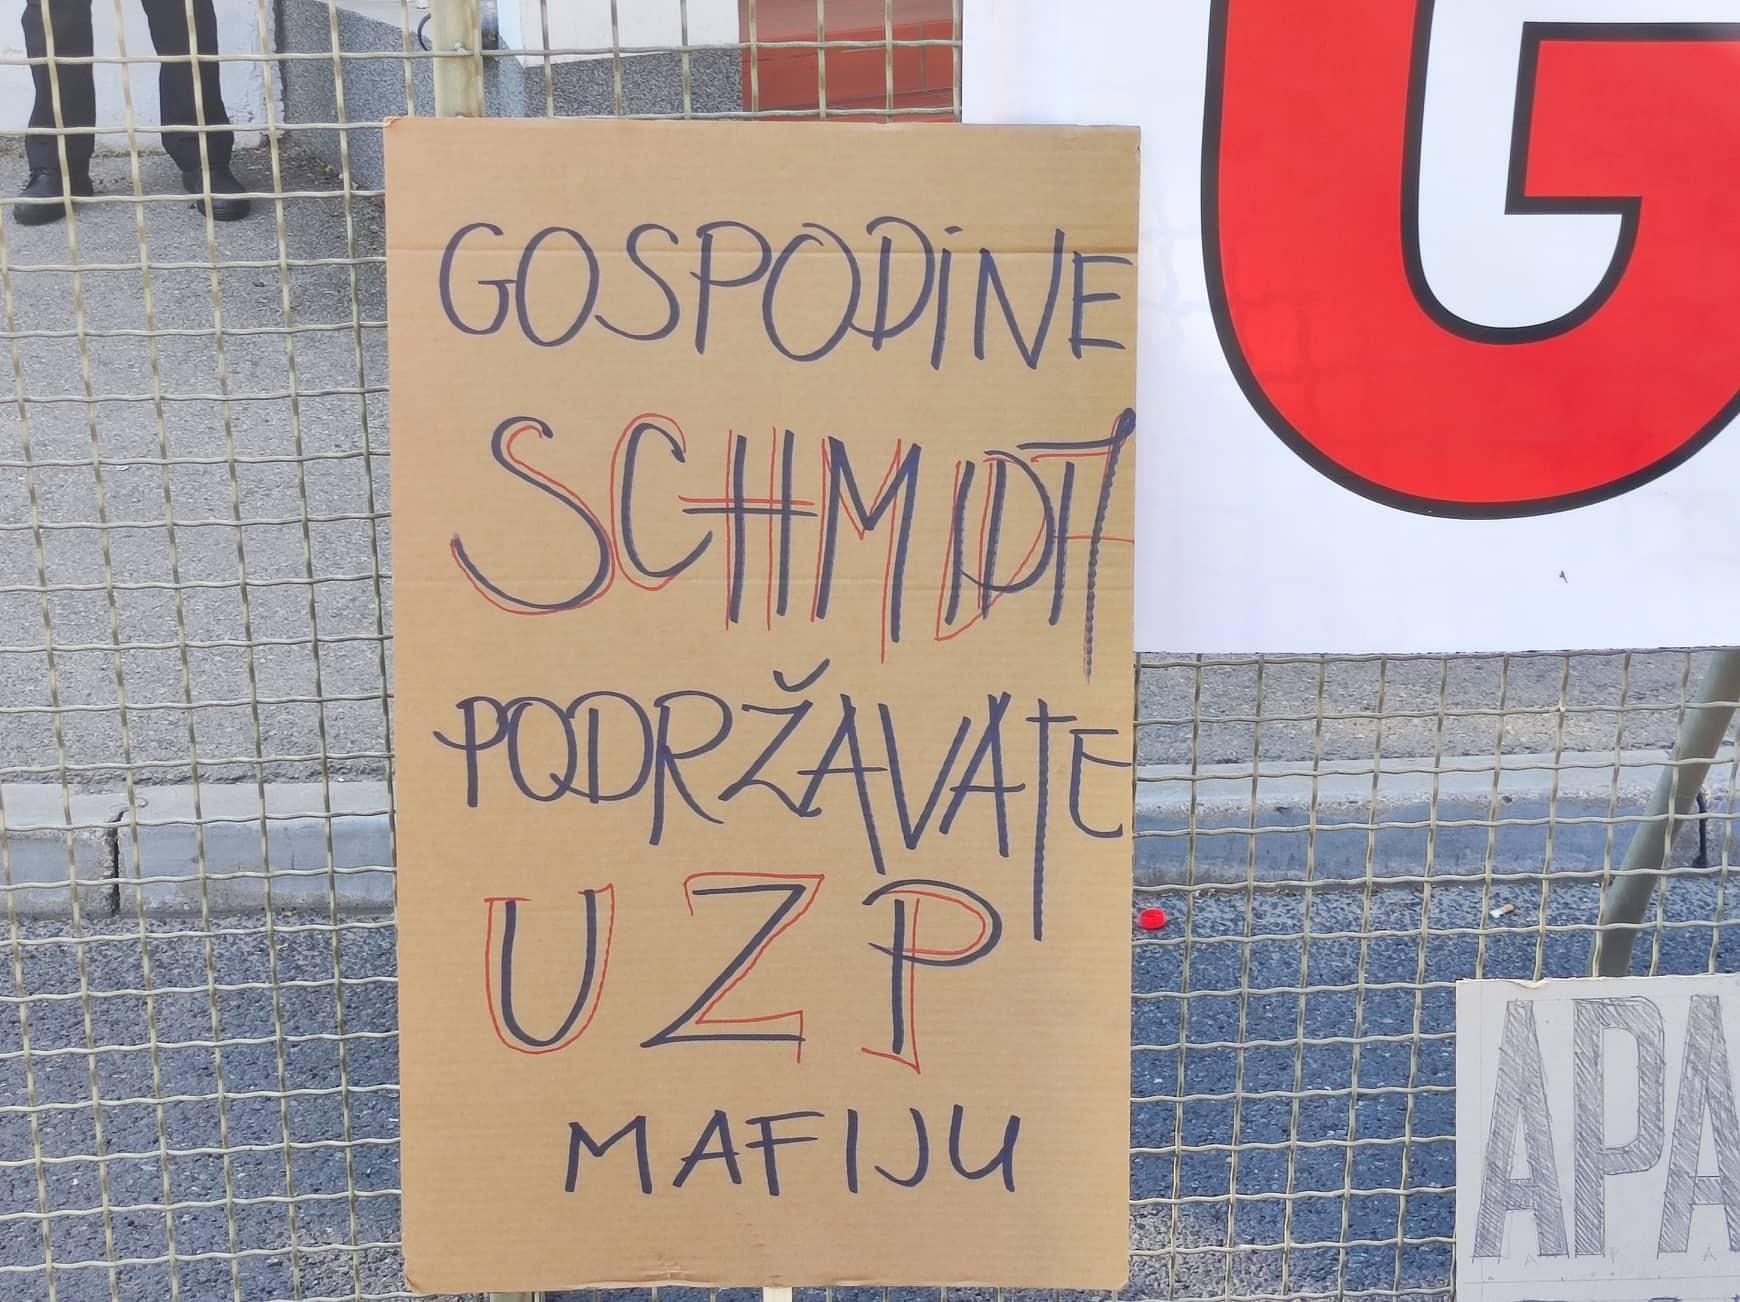 GOSPODINE
SCHMIDT
PODRŽAVATE
UZP
MAFIJU
G
APA